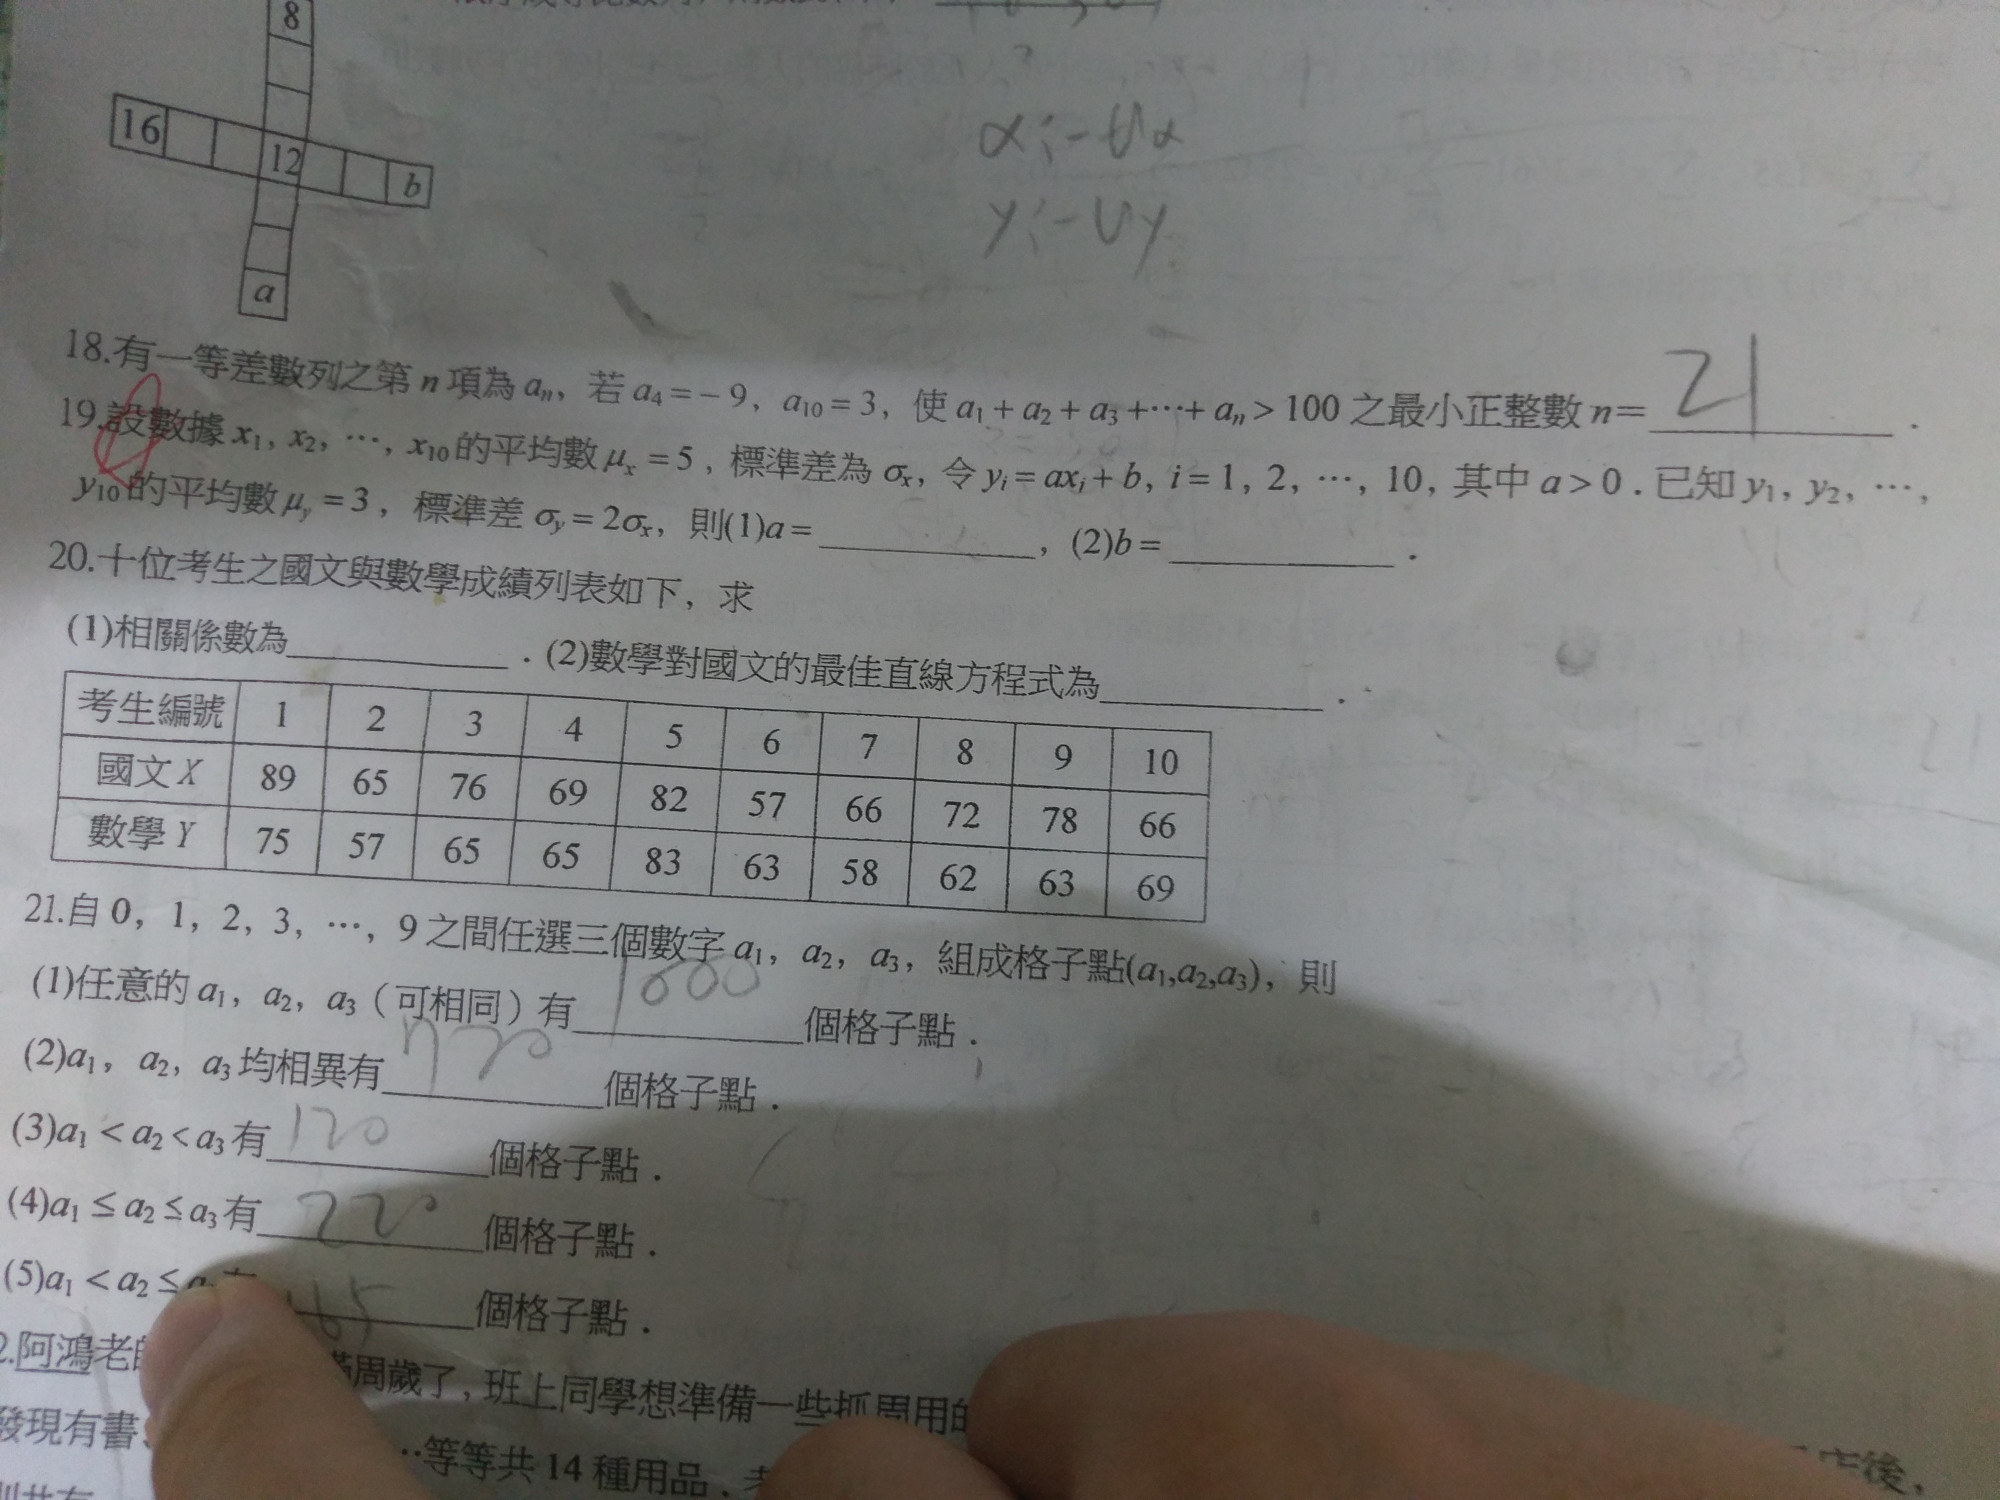 8
16
12
b
a
αi-Uα
yi-Uy
18.有一等差數列之第 n 項為 aₙ，若 a₄=-9，a₁₀=3，使 a₁+a₂+a₃+…+aₙ>100 之最小正整數 n= 21 .
19.設數據 x₁, x₂, …, x₁₀ 的平均數 μₓ=5，標準差為 σₓ，令 yᵢ=axᵢ+b, i=1, 2, …, 10, 其中 a>0．已知 y₁, y₂, …,
y₁₀ 的平均數 μᵧ=3，標準差 σᵧ=2σₓ，則(1)a= ，(2)b= .
20.十位考生之國文與數學成績列表如下，求
(1)相關係數為 ．(2)數學對國文的最佳直線方程式為 .
考生編號 1 2 3 4 5 6 7 8 9 10
國文 X 89 65 76 69 82 57 66 72 78 66
數學 Y 75 57 65 65 83 63 58 62 63 69
21.自 0，1，2，3，…，9 之間任選三個數字 a₁，a₂，a₃，組成格子點(a₁,a₂,a₃)，則
(1)任意的 a₁，a₂，a₃（可相同）有 1000 個格子點．
(2)a₁，a₂，a₃ 均相異有 720 個格子點．
(3)a₁<a₂<a₃ 有 120 個格子點．
(4)a₁≤a₂≤a₃ 有 220 個格子點．
(5)a₁<a₂≤ 165 個格子點．
2.阿鴻老 周歲了，班上同學想準備一些抓周用的
發現有書、 …等等共 14 種用品． 店後，